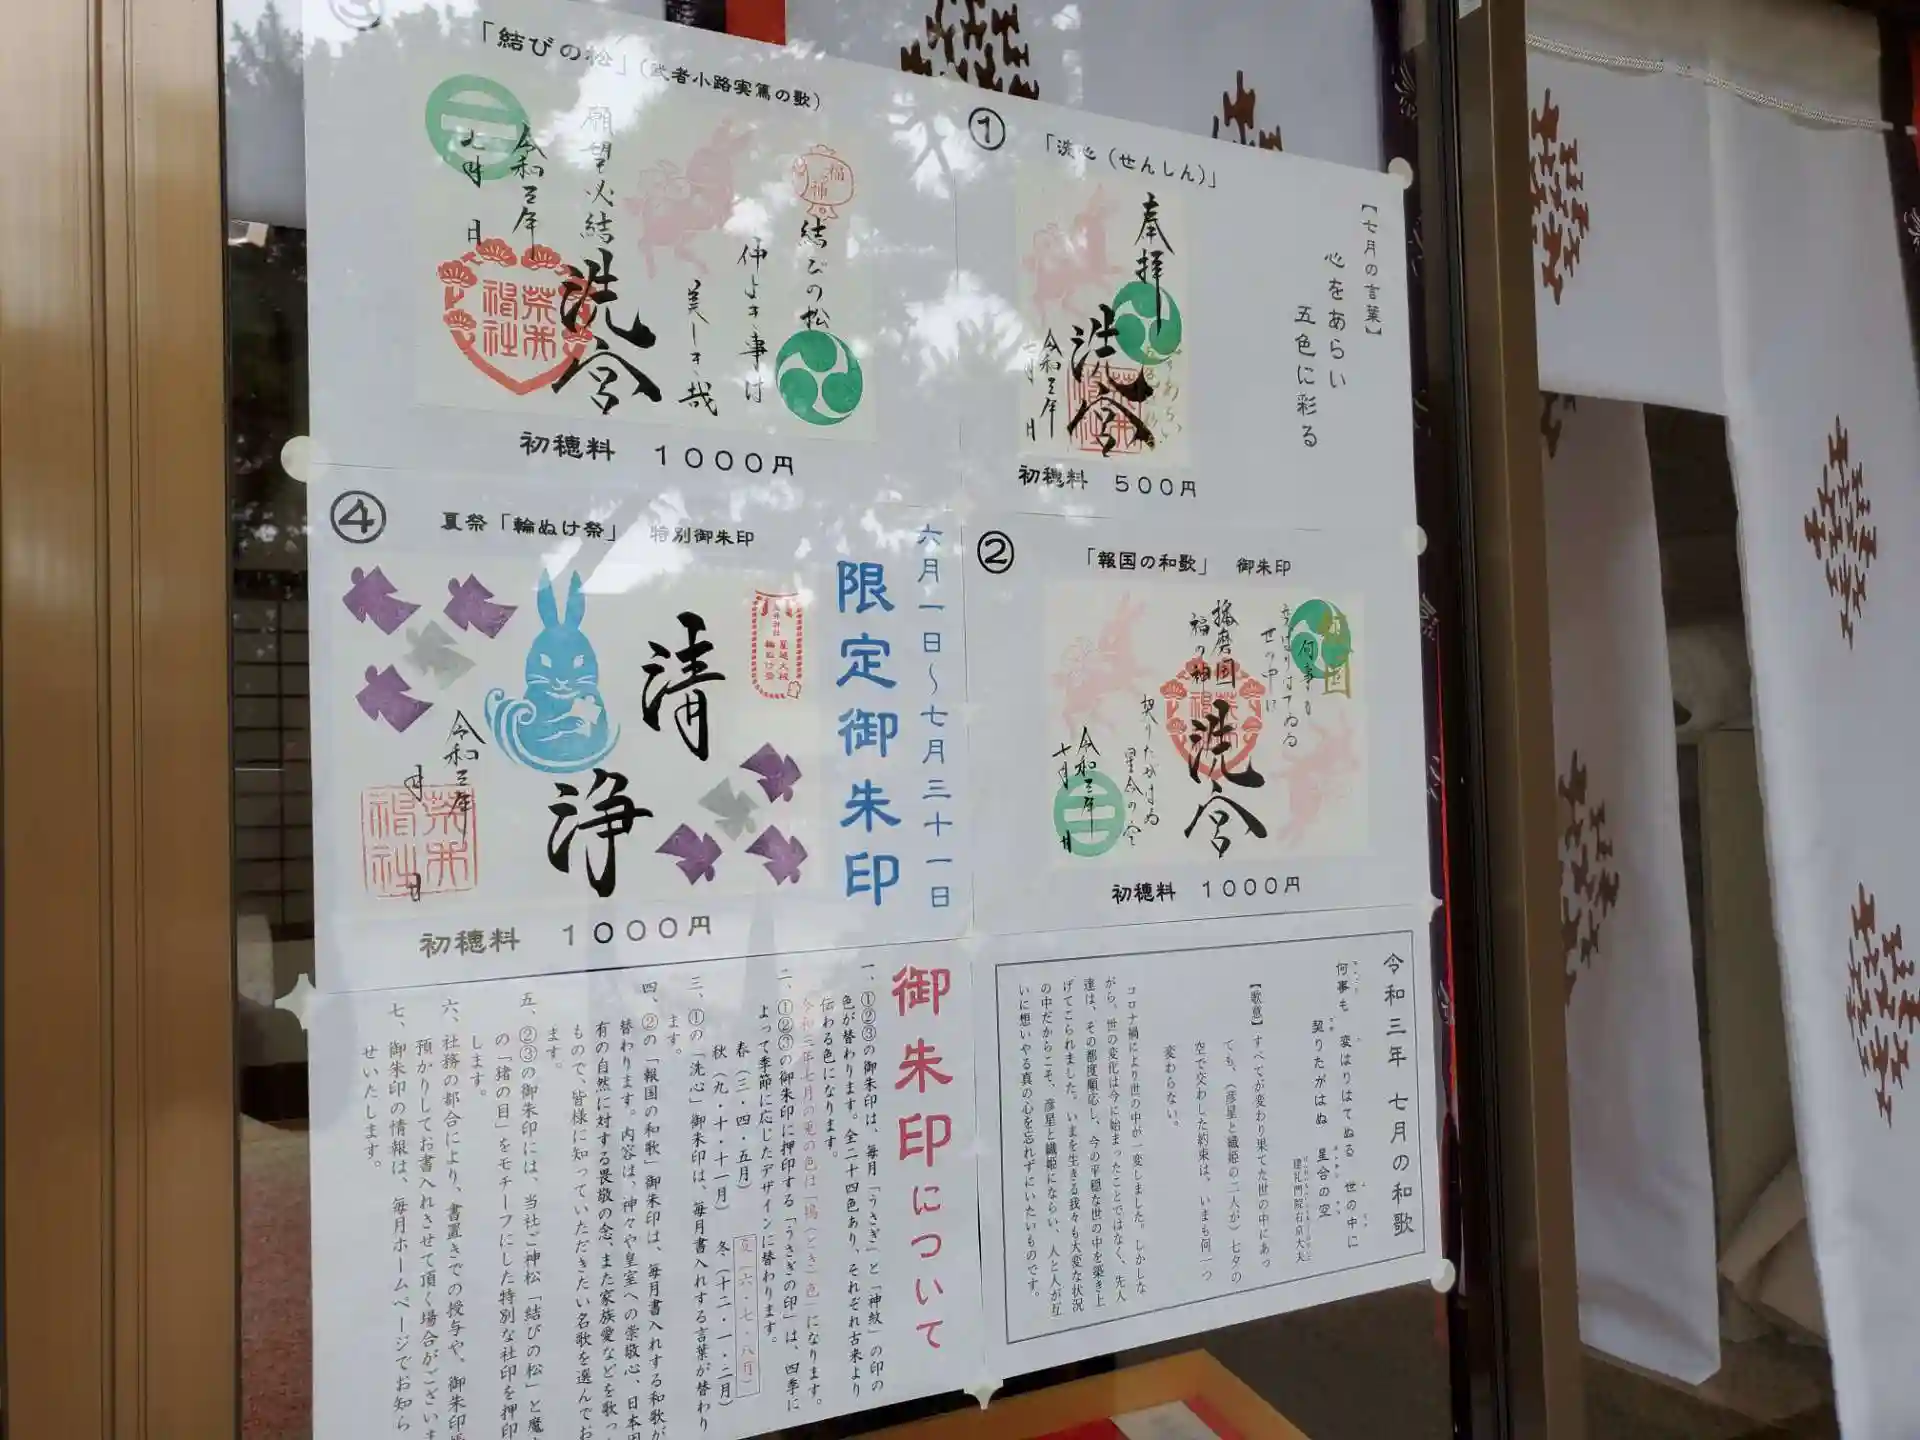 「結びの松」(武者小路実篤の歌)
福神
結びの松
仲よき事は
美しき哉
願望必結
洗宮
令和三年
七月 日
初穂料 1000円
①
「洗心(せんしん)」
【七月の言葉】
心をあらい
五色に彩る
奉拝
洗宮
令和三年
七月 日
初穂料 500円
④
夏祭「輪ぬけ祭」 特別御朱印
六月一日~七月三十一日
限定御朱印
清
浄
令和三年
月 日
初穂料 1000円
②
「報国の和歌」 御朱印
何事も
世の中に
契りたがはぬ
星合の空
播磨国
福の神
洗宮
令和三年
七月 日
初穂料 1000円
令和三年 七月の和歌
何事も 変はりはてぬる 世の中に
契りたがはぬ 星合の空
建礼門院右京大夫
【歌意】すべてが変わり果てた世の中にあっ
ても、(彦星と織姫の二人が)七夕の
空で交わした約束は、いまも何一つ
変わらない。
コロナ禍により世の中が一変しました。しかしな
がら、世の変化は今に始まったことではなく、先人
達は、その都度順応し、今の平穏な世の中を築き上
げてこられました。いまを生きる我々も大変な状況
の中だからこそ、彦星と織姫にならい、人と人が互
いに想いやる真の心を忘れずにいたいものです。
御朱印について
一、①②③の御朱印は、毎月「うさぎ」と「神紋」の印の
色が替わります。全二十四色あり、それぞれ古来より
伝わる色になります。
令和三年七月の兎の色は「鴇(とき)色」になります。
二、①②③の御朱印に押印する「うさぎの印」は、四季に
よって季節に応じたデザインに替わります。
春(三・四・五月) 夏(六・七・八月)
秋(九・十・十一月) 冬(十二・一・二月)
三、①の「洗心」御朱印は、毎月書入れする言葉が替わり
ます。
四、②の「報国の和歌」御朱印は、毎月書入れする和歌が
替わります。内容は、神々や皇室への崇敬心、日本国
有の自然に対する畏敬の念、また家族愛などを歌っ
もので、皆様に知っていただきたい名歌を選んでお
ます。
五、②③の御朱印には、当社ご神松「結びの松」と魔
の「猪の目」をモチーフにした特別な社印を押印
します。
六、社務の都合により、書置きでの授与や、御朱印
預かりしてお書入れさせて頂く場合がございま
七、御朱印の情報は、毎月ホームページでお知ら
せいたします。